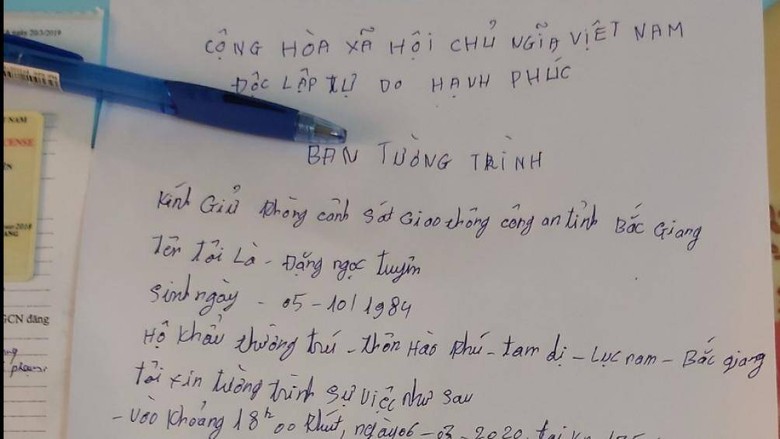 n ngày 20/3/2019
CỘNG HÒA XÃ HỘI CHỦ NGĨA VIỆT NAM
ĐỘC LẬP TỰ DO HẠNH PHÚC
BAN TƯỜNG TRÌNH
Kính Giử Phòng cảnh sát Giao thông công an tỉnh Bắc Giang
Tên tôi Là - Đặng ngọc tuyên
Sinh ngày - 05-10/1984
Hộ khẩu thường trú - thôn Hào Phú - tam dị - Lục nam - Bắc giang
Tôi xin tường trình sự việc như sau
- Vào khoảng 18h 00 Phút, ngày 06-03-2020, tại
NAM
CENSE
GCN đăng